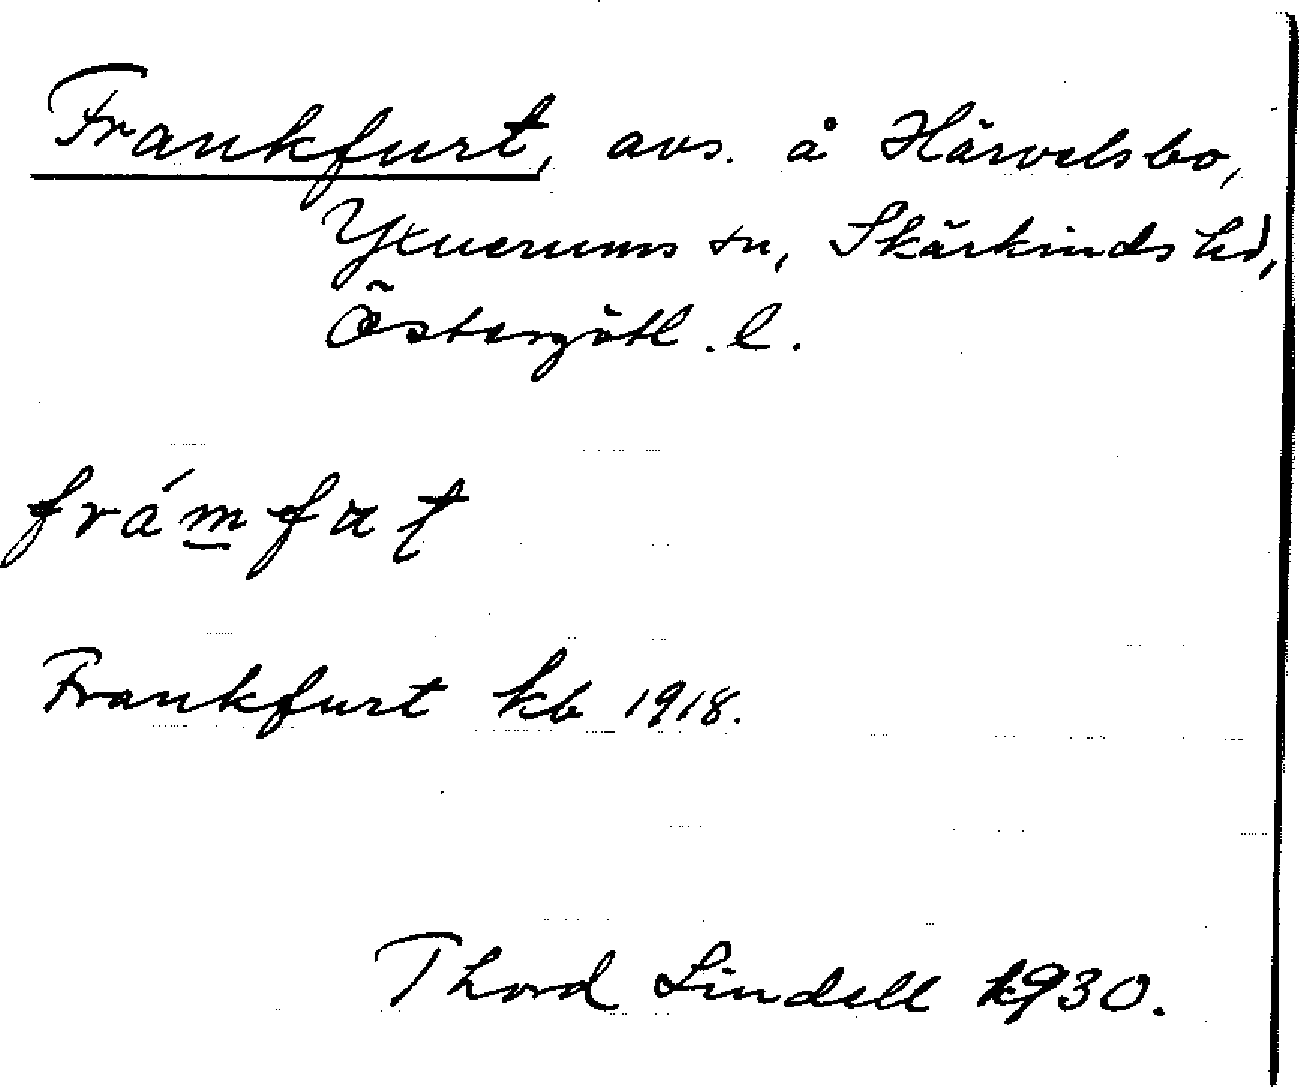 Frankfurt, avs. å Härvelsbo,
Yxnerums sn, Skärkinds hd,
Östergötl. l.
Frankfurt kb 1918.
Thord Lindell 1930.